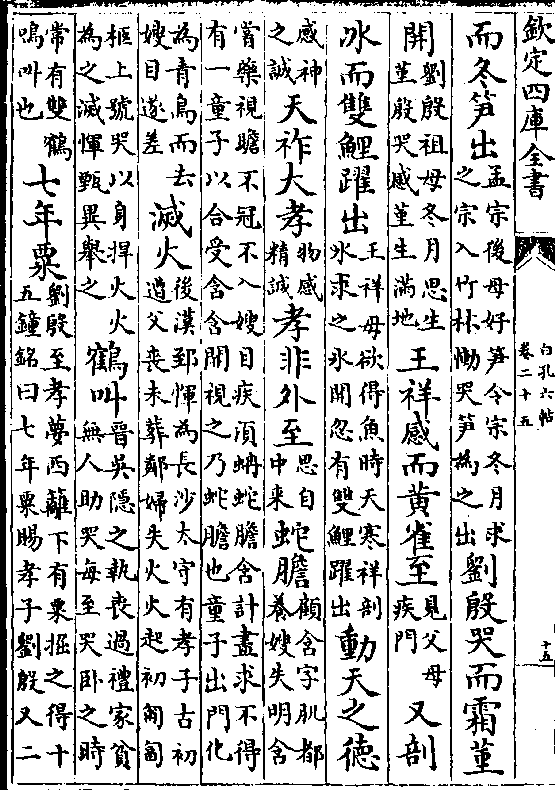 欽定四庫全書
白孔六帖
卷二十五
十五
而冬笋出孟宗後母好笋令宗冬月求之宗入竹林慟哭笋為之出劉殷哭而霜菫
開劉殷祖母冬月思生菫殷哭感菫生滿地王祥感而黄雀至見父母疾門又剖
冰而雙鯉躍出王祥母欲得魚時天寒祥剖氷求之氷開忽有雙鯉躍出動天之德
感神之誠天祚大孝物感精誠孝非外至思自中来蛇膽顧含字肌都養嫂失明含
嘗藥視瞻不冠不入嫂目疾湏蚺蛇膽含計盡求不得有一童子以合受含含開視之乃蛇膽也童子出門化
為青鳥而去嫂目遂差滅火後漢郅惲為長沙太守有孝子古初遭父丧未葬鄰婦失火火起初匍匐
柩上號哭以身捍火火為之滅惲甄異舉之鶴叫晉吳隐之執丧過禮家貧無人助哭每至哭卧之時
常有雙鶴鳴叫也七年粟劉殷至孝夢西籬下有粟掘之得十五鐘銘曰七年粟賜孝子劉殷又二